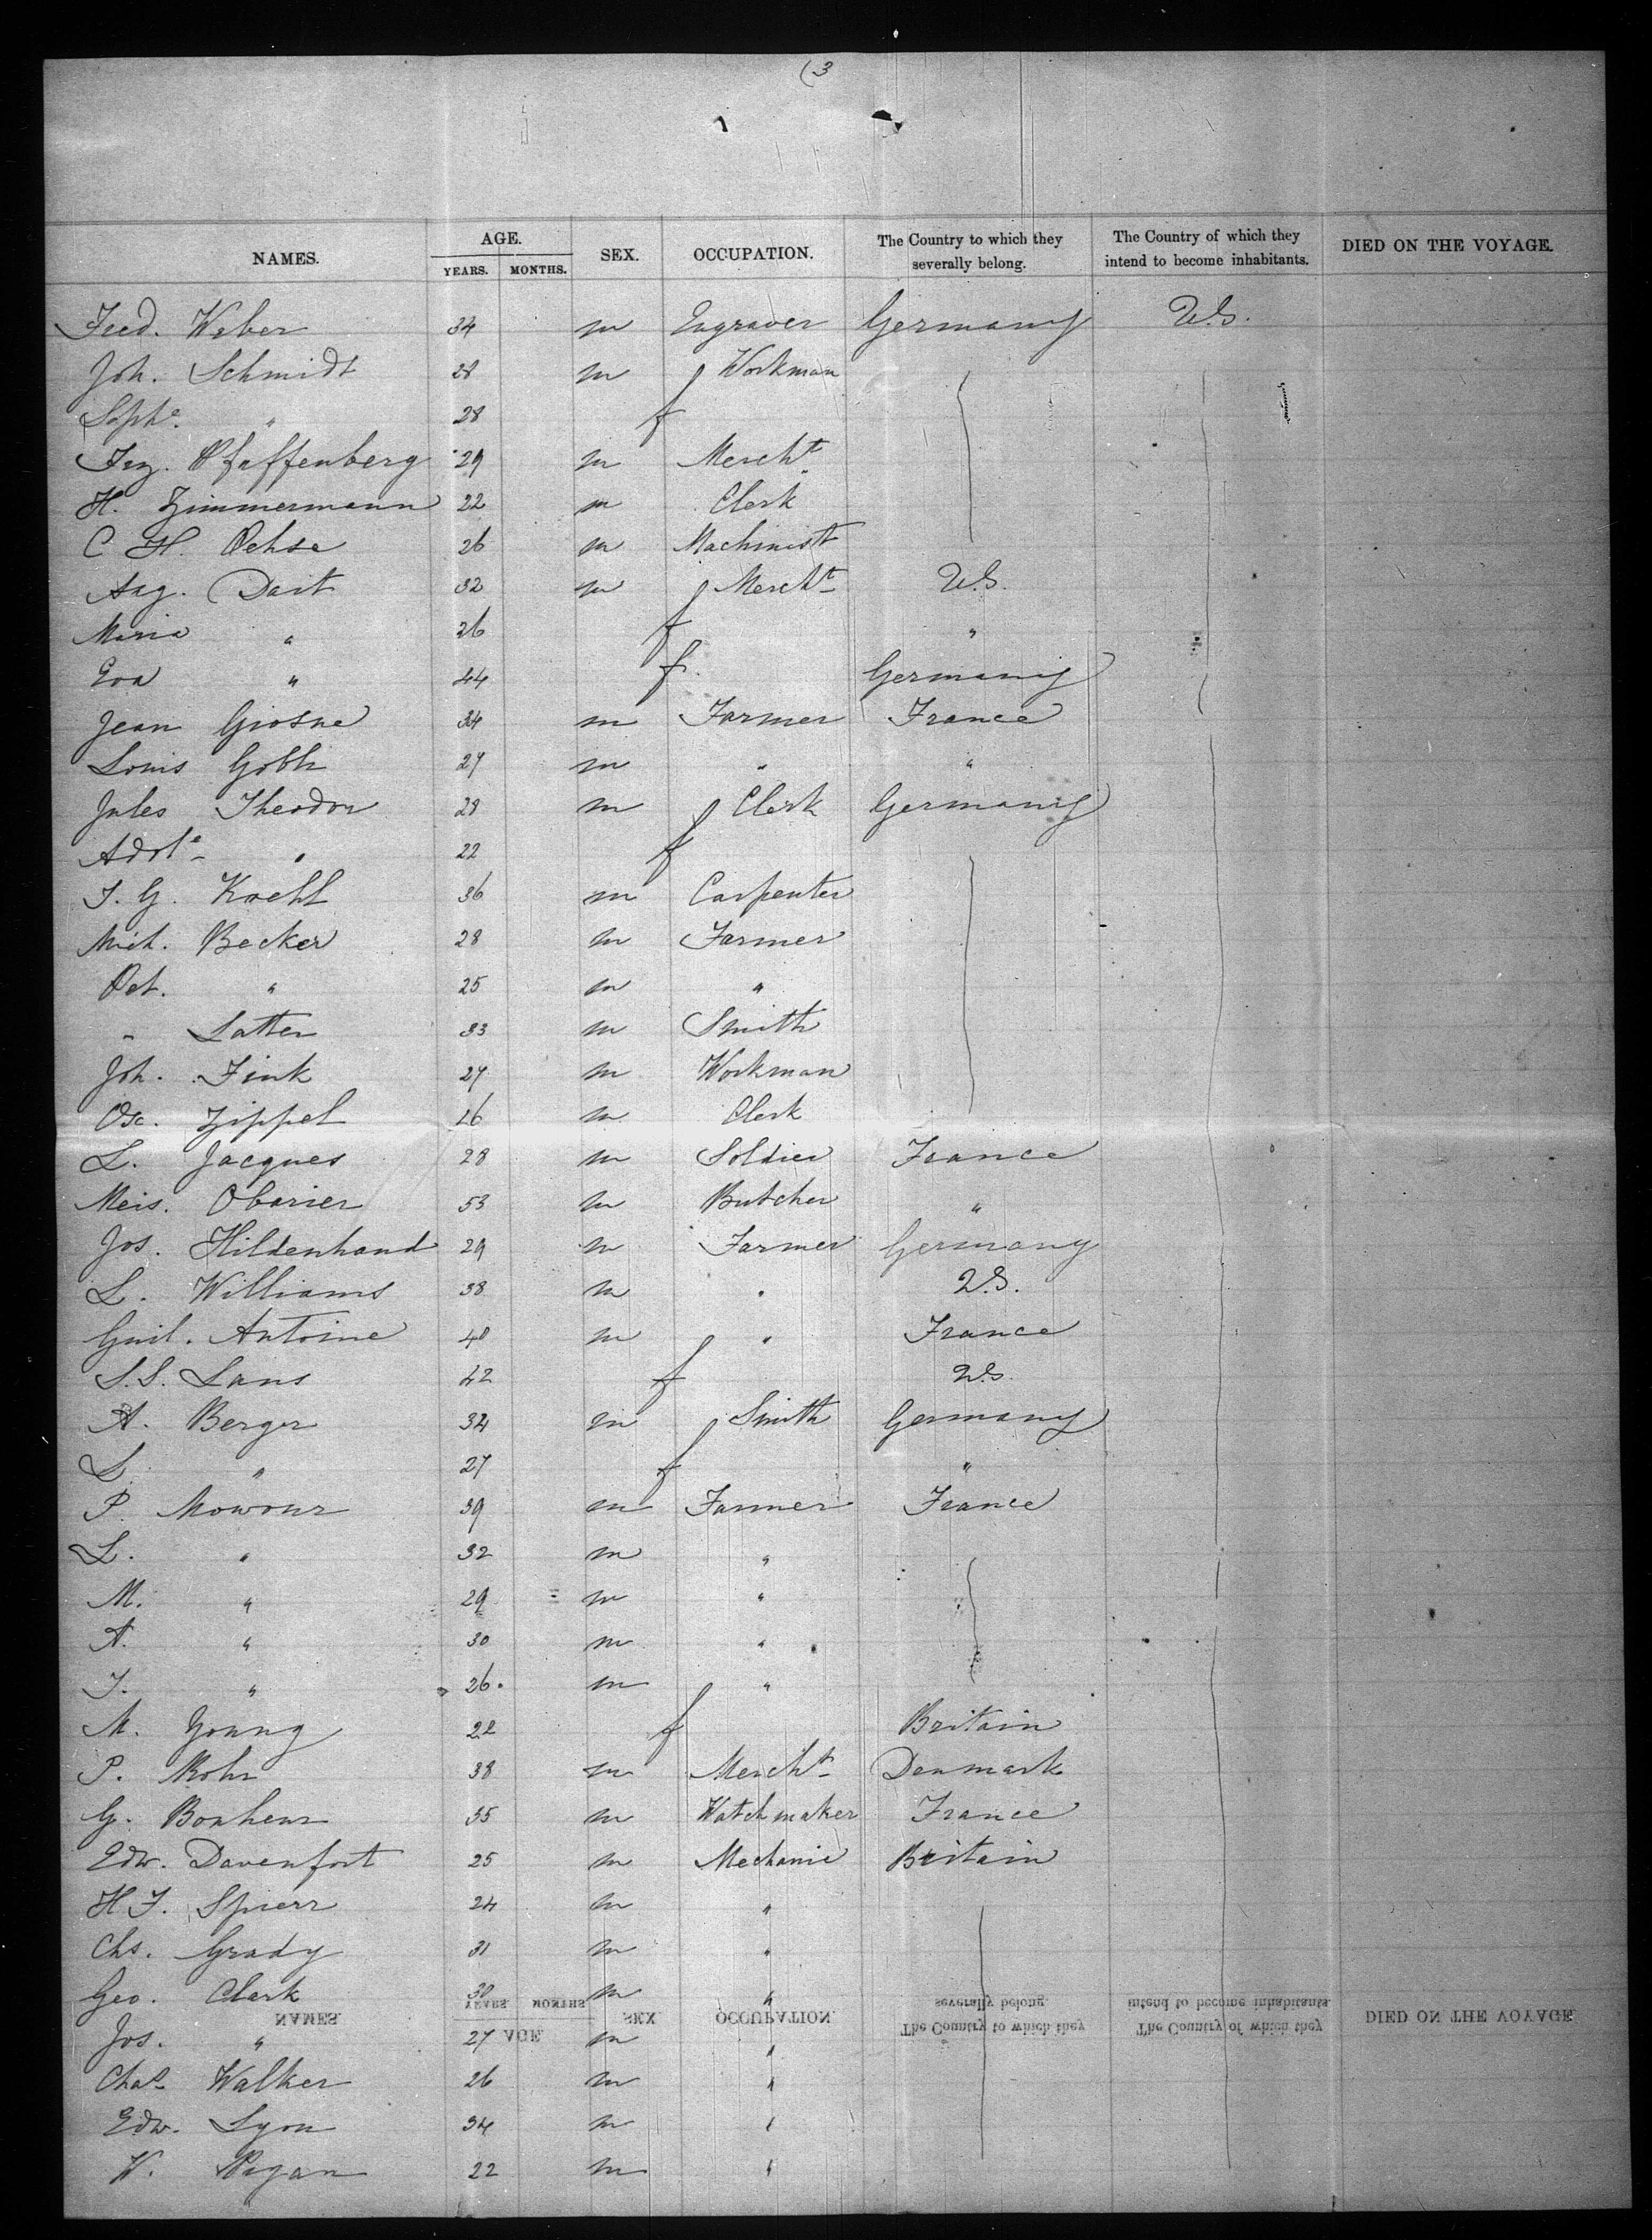 (3
NAMES. AGE. YEARS. MONTHS. SEX. OCCUPATION. The Country to which they severally belong. The Country of which they intend to become inhabitants. DIED ON THE VOYAGE.
Fred. Weber 34 m Engraver Germany U.S.
Joh. Schmidt 28 m Workman
Sophe. " 28 f
Frz. Pfaffenberg 29 m Mercht
H. Zimmermann 22 m Clerk
C. H. Ochse 26 m Machinist
Aug. Dart 32 m Mercht U.S.
Maria " 26 f "
Eva " 44 f Germany
Jean Giosne 34 m Farmer France
Louis Gobh 27 m " "
Jules Theodor 28 m Clerk Germany
Adole " 22 f
J. G. Koehl 36 m Carpenter
Mich. Becker 28 m Farmer
Pet. " 25 m "
" Latter 33 m Smith
Joh. Fink 27 m Workman
Osc. Zippel 26 m Clerk
L. Jacques 28 m Soldier France
Meis. Obarier 53 m Butcher "
Jos. Hildenhand 29 m Farmer Germany
L. Williams 38 m " U.S.
Guil. Antoine 40 m " France
S.S. Lans 42 f U.S.
A. Berger 34 m Smith Germany
L. " 27 f "
P. Mowour 39 m Farmer France
L. " 32 m "
M. " 29 m "
A. " 30 m "
J. " 26 m "
M. Young 22 f Britain
P. Mohr 38 m Mercht Denmark
G. Bonheur 35 m Watchmaker France
Edw. Davenport 25 m Mechanic Britain
H. J. Spierr 24 m "
Chs. Grady 31 m "
Geo. Clark 30 m "
NAMES. YEARS. MONTHS. AGE. SEX. OCCUPATION. The Country to which they severally belong. The Country of which they intend to become inhabitants. DIED ON THE VOYAGE.
Jos. " 27 m "
Chas Walker 26 m "
Edw. Lyon 34 m "
W. Pigan 22 m "